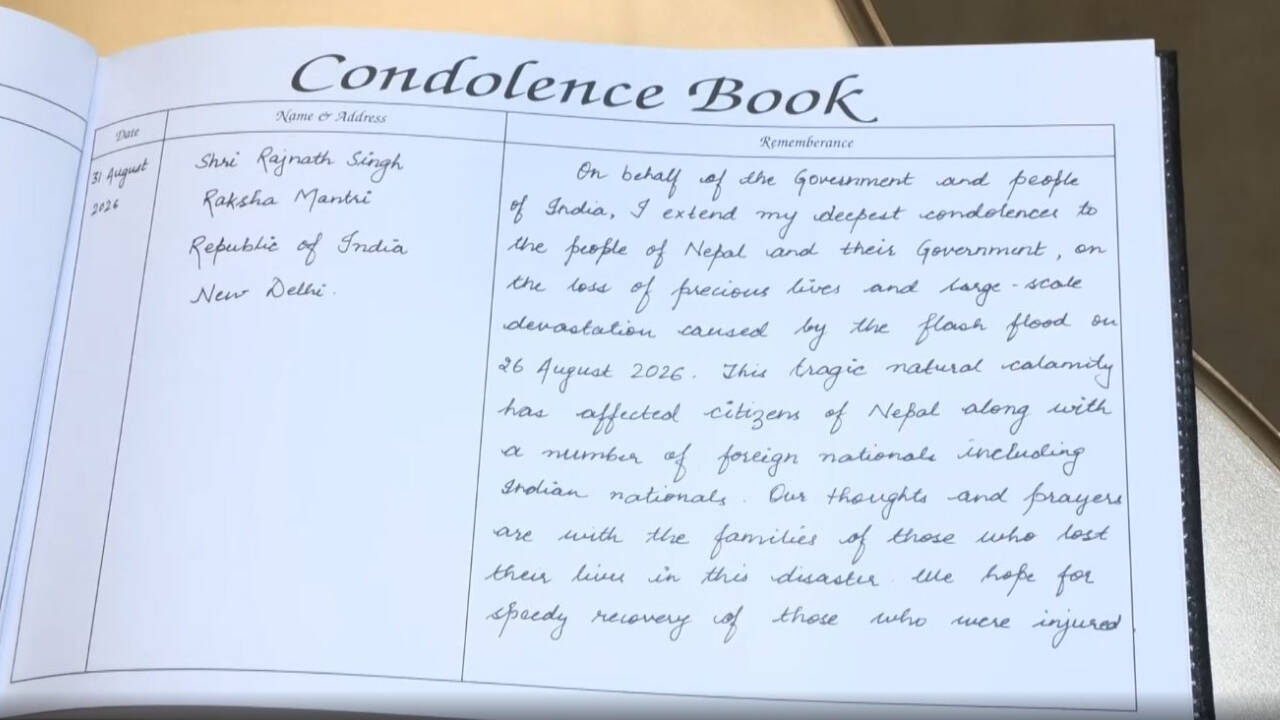 Condolence Book
Date
Name & Address
Rememberance
31 August
2026
Shri Rajnath Singh
Raksha Mantri
Republic of India
New Delhi.
On behalf of the Government and people
of India, I extend my deepest condolences to
the people of Nepal and their Government, on
the loss of precious lives and large-scale
devastation caused by the flash flood on
26 August 2026. This tragic natural calamity
has affected citizens of Nepal along with
a number of foreign nationals including
Indian nationals. Our thoughts and prayers
are with the families of those who lost
their lives in this disaster. We hope for
speedy recovery of those who were injured.